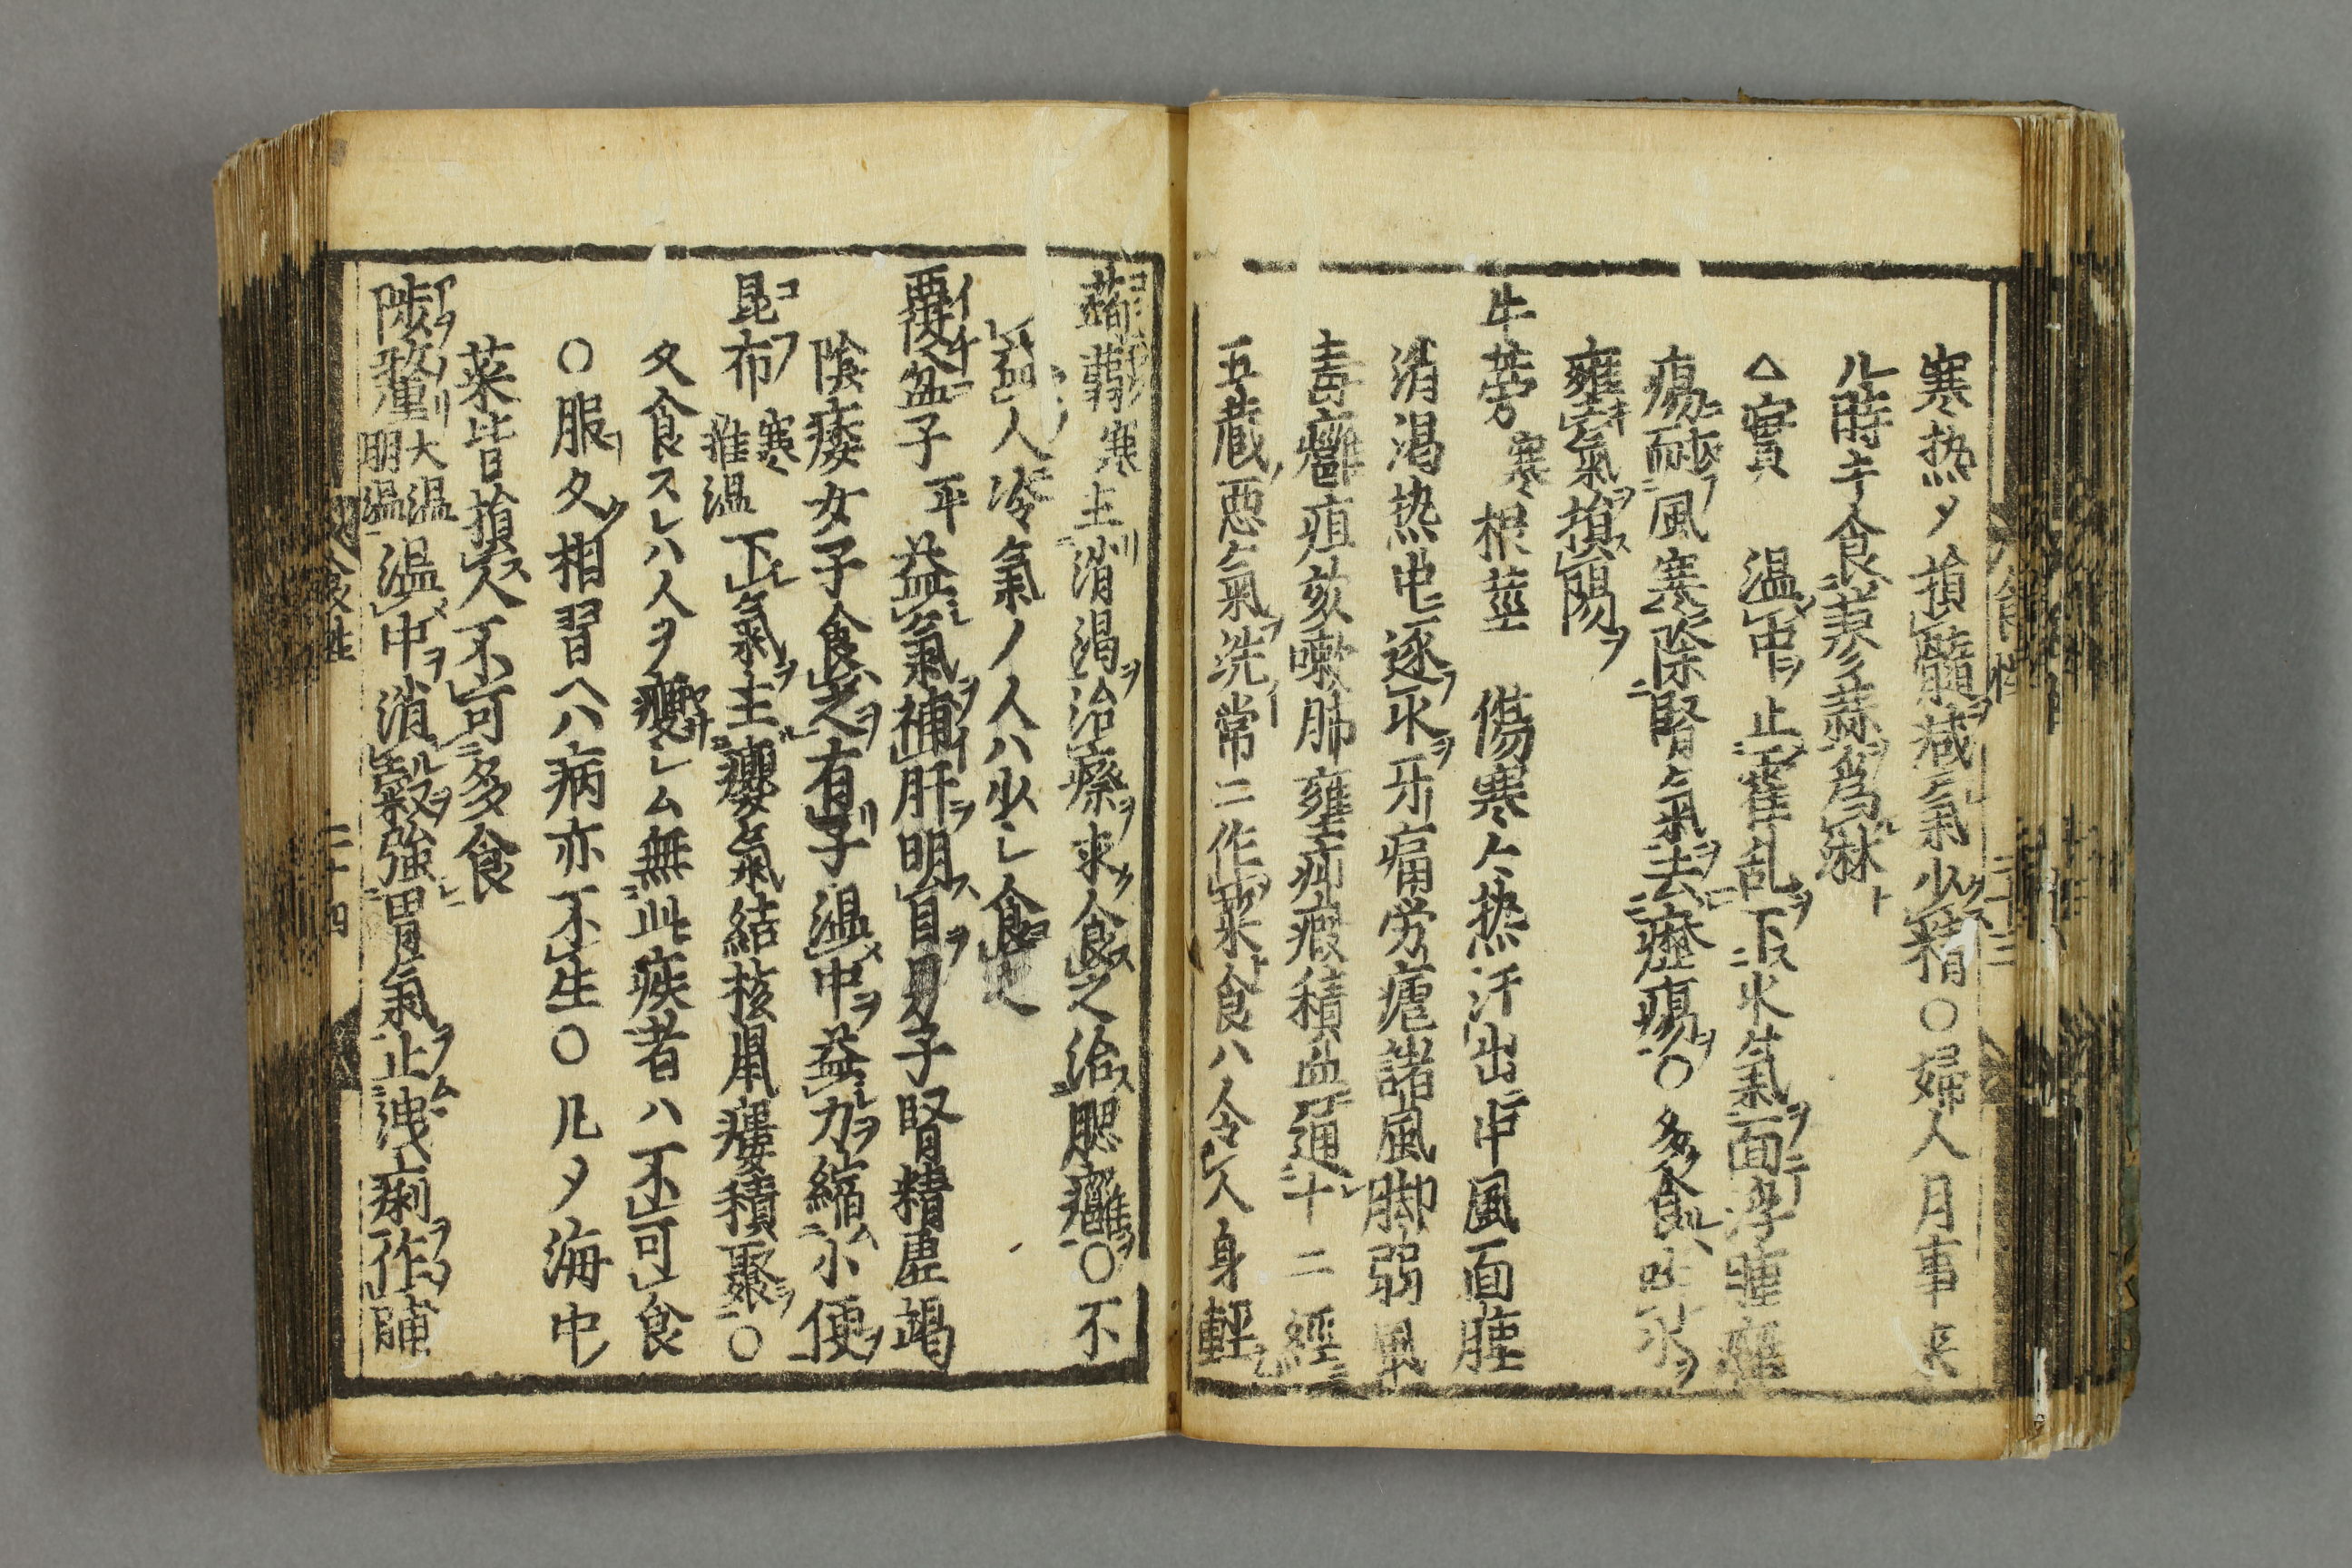 寒热メ損髓減氣少精〇婦人月事来
ル時キ食寒多蒜為淋ト
△實 温中止霍乱下水氣面浮腫癰
瘍耐風寒除腎氣去癧瘍〇多食吐水
癰氣損陽ヲ
牛蒡 寒 根莖 傷寒々热汗出中風面腫
消渴热中逐水牙痛労瘧諸風脚弱風
毒癰疽欬嗽肺癰疝瘕積血通十二經
五蔵惡氣洗常ニ作菜食ハ令人身輕
蒟蒻 寒 主消渇治療求食之治腮癰〇不
益人冷氣ノ人ハ少シ食之
覆盆子 平 益氣補肝明目男子腎精虚竭
陰痿女子食之有子温中益力縮小便
昆布 寒 雖温 下氣主癭氣結核鼡瘻積聚〇
久食スレハ人ヲ癭シム無此疾者ハ不可食
〇服久相習ヘハ病亦不生〇凡メ海中
菜皆損人不可多食
陟釐 大温 明温 温中消穀強胃氣止洩痢作脯
食性 二十四